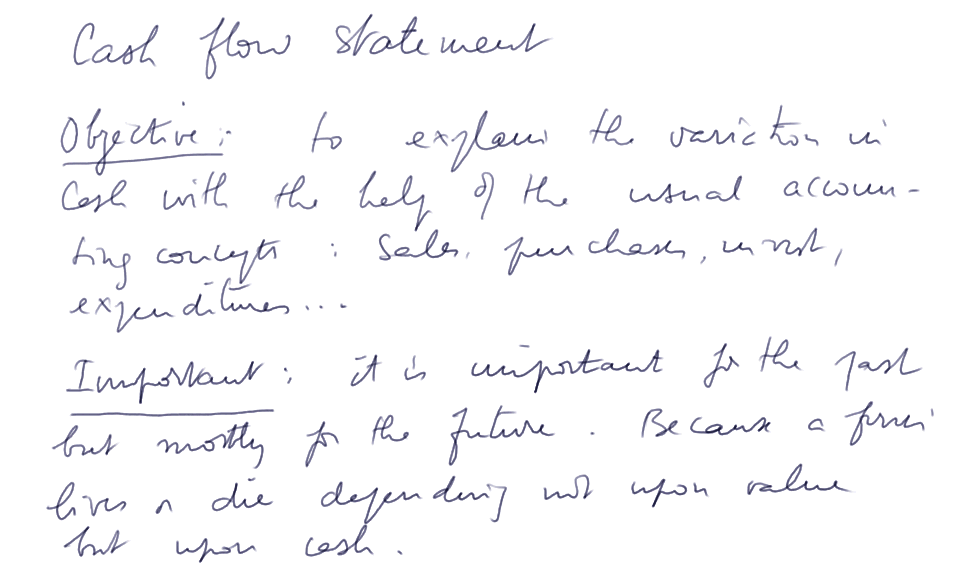 Cash flow statement
Objective : to explain the variation in
Cash with the help of the usual accoun-
ting concepts : Sales, purchases, invest,
expenditures...
Important : it is important for the past
but mostly for the future. Because a firm
lives or die depending not upon value
but upon cash.